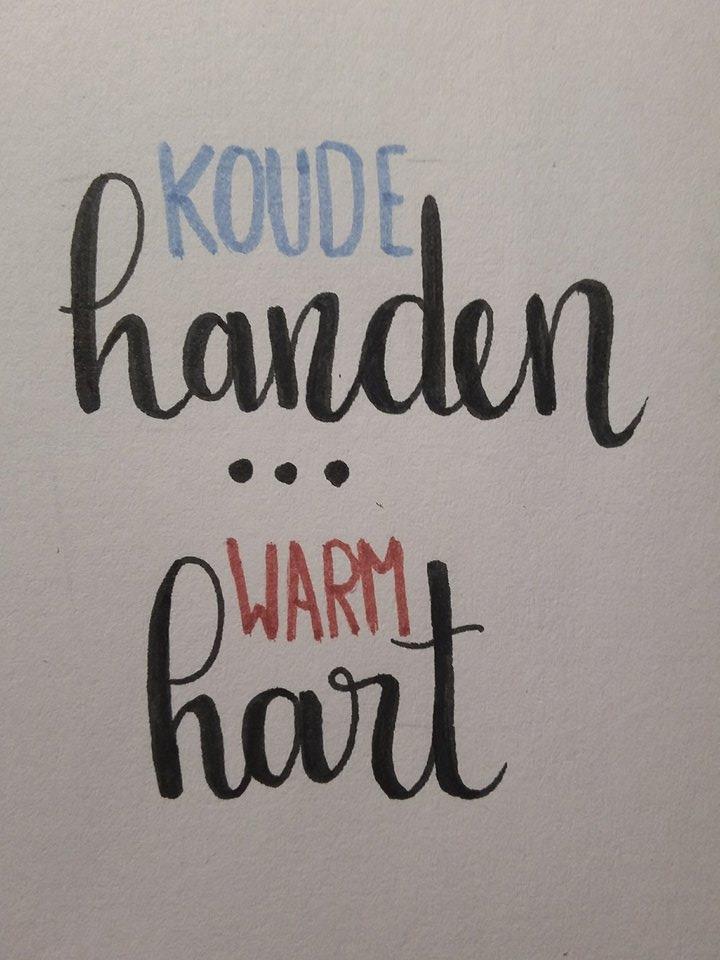 KOUDE
handen
...
WARM
hart